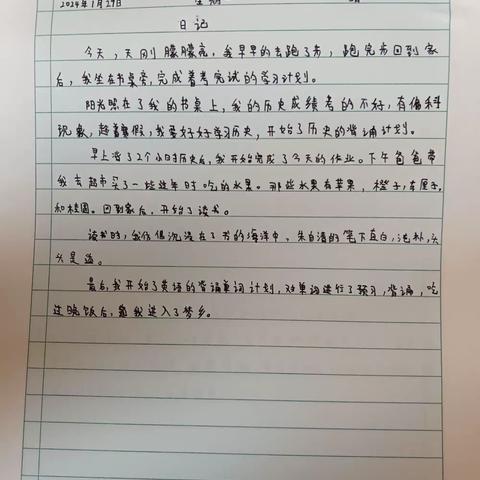 2024年1月29日 星期
日记
今天,天刚朦朦亮,我早早的去跑了步,跑完步回到家
后,我坐在书桌旁,完成着考完试的学习计划。
阳光照在了我的书桌上,我的历史成绩考的不好,有偏科
现象,趁着寒假,我要好好学习历史,开始了历史的背诵计划。
早上背了2个小时历史后,我开始完成了今天的作业。下午爸爸带
我去超市买了一些过年时吃的水果。那些水果有苹果,橙子,车厘子,
和桂圆。回到家后,开始了读书。
读书时,我仿佛沉浸在了书的海洋中,朱自清的笔下直白,洁朴,头
头是道。
最后,我开始了英语的背诵单词计划,对单词进行了预习,背诵,吃
过晚饭后,我进入了梦乡。